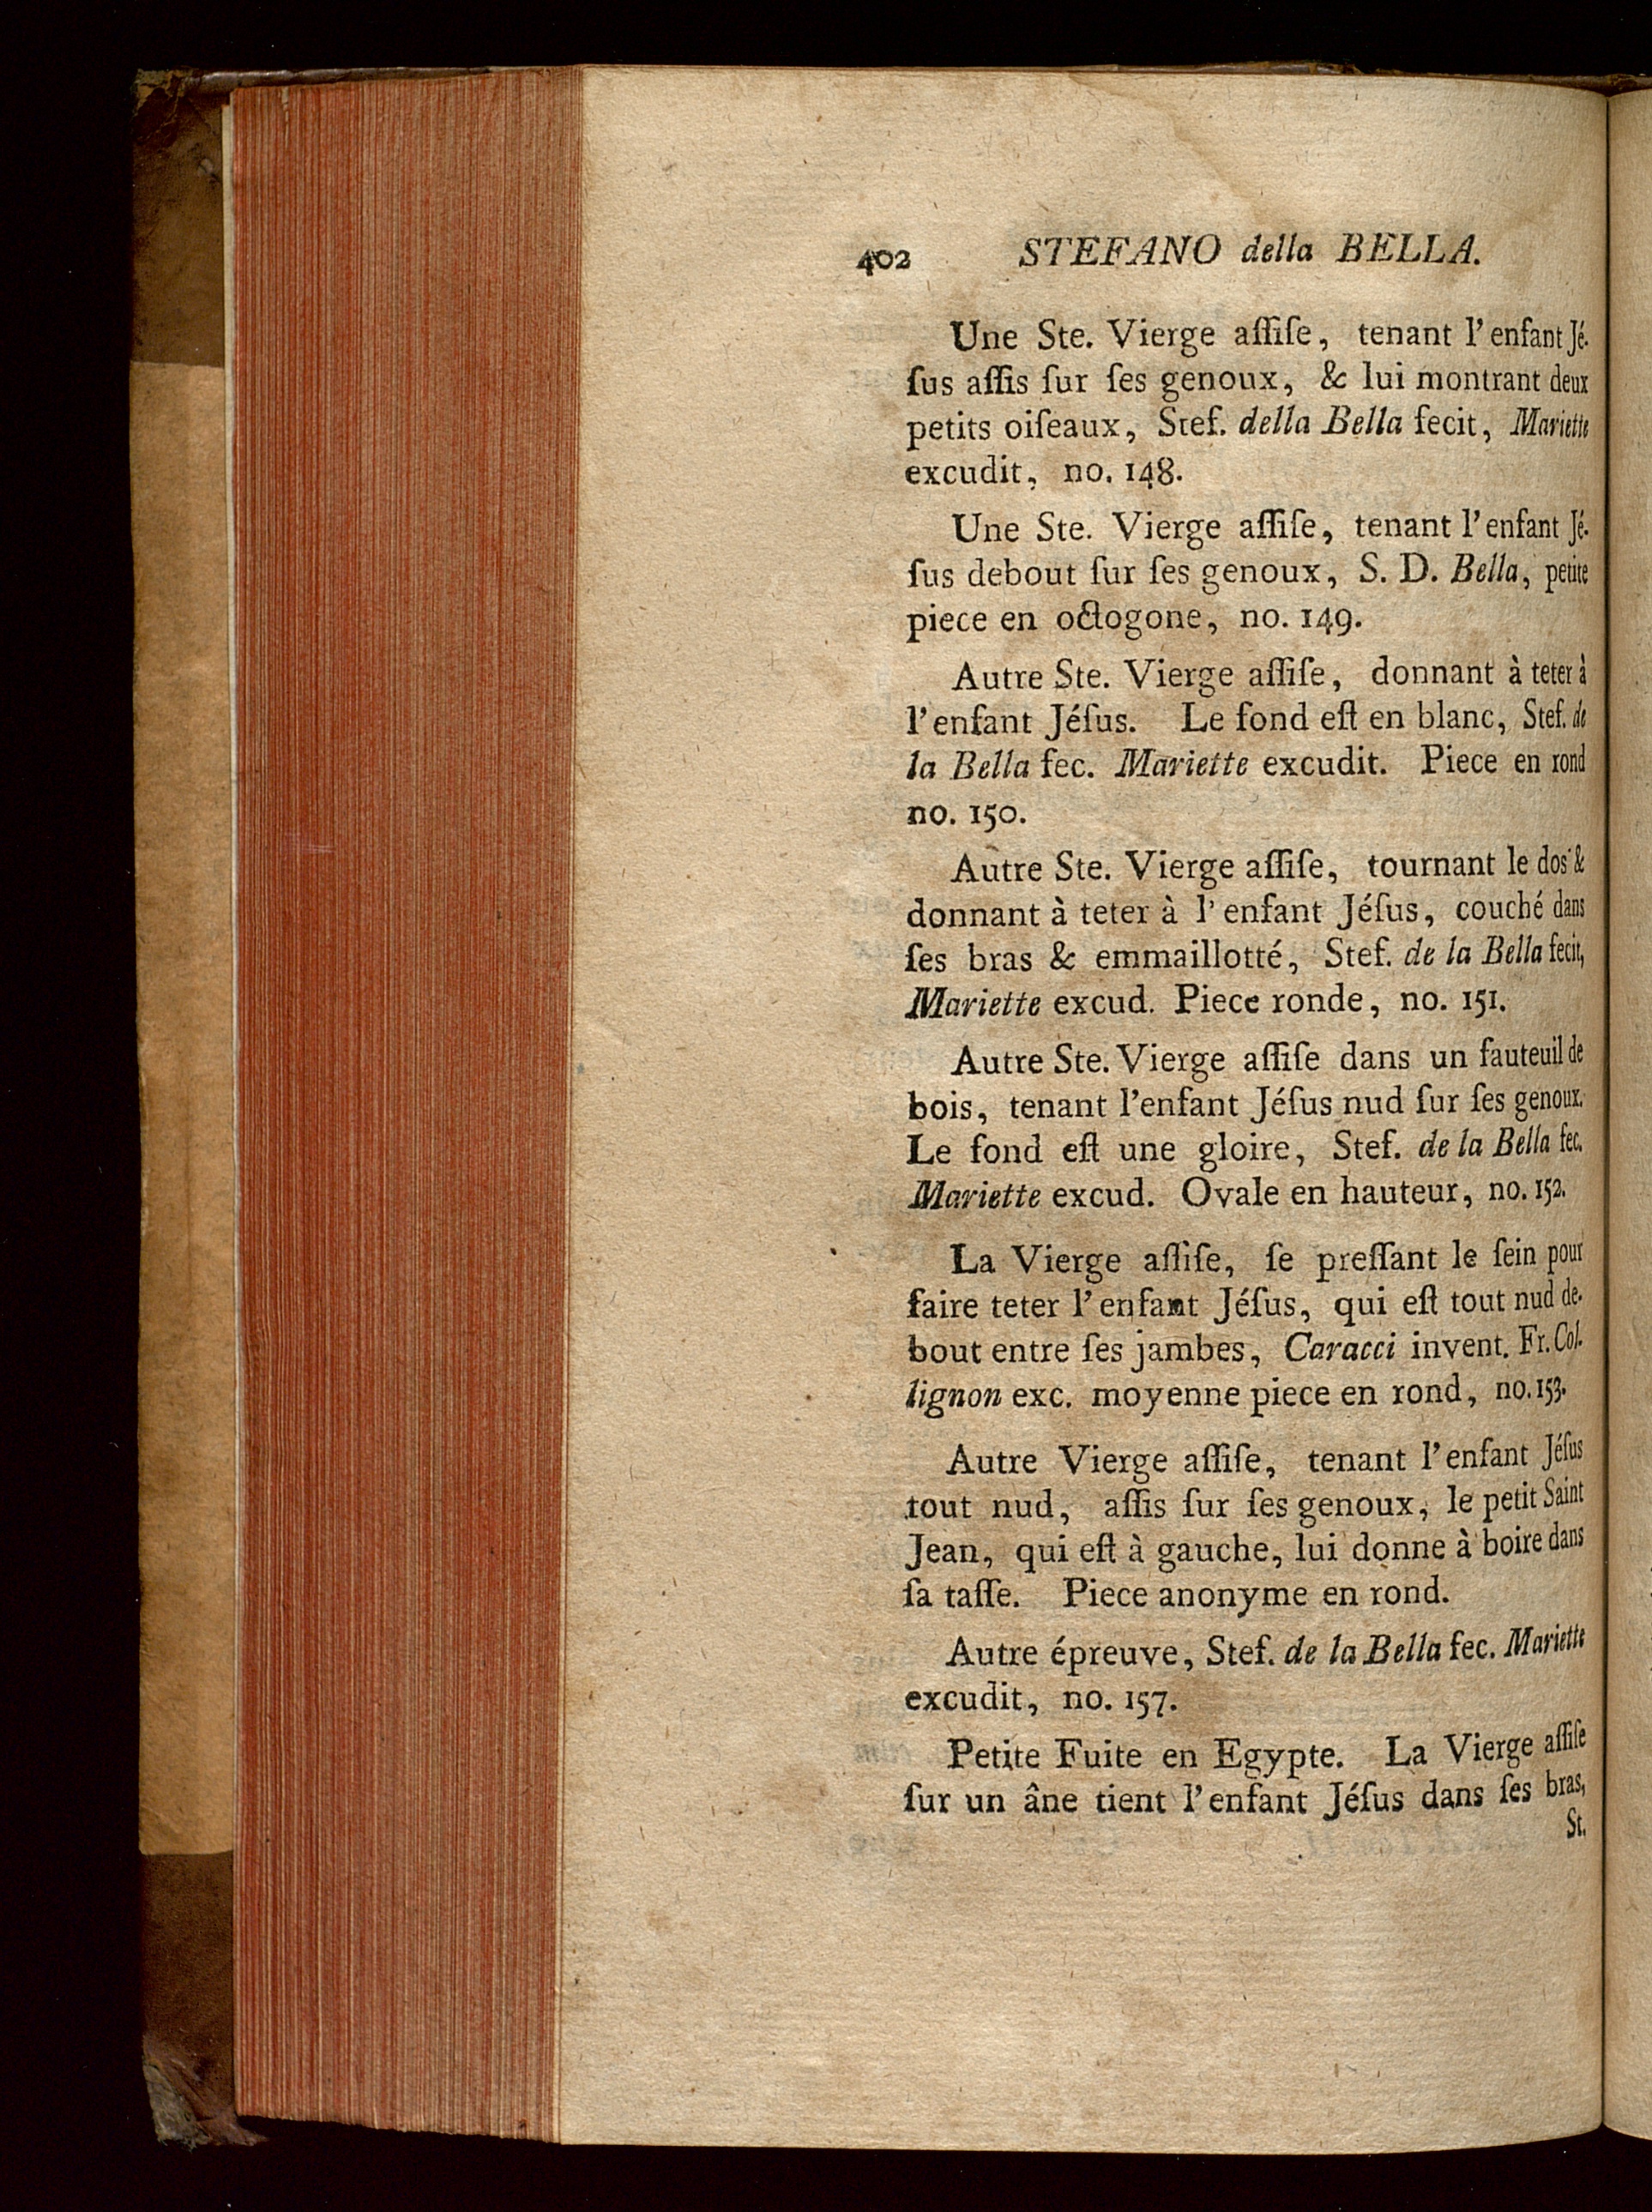 402 STEFANO della BELLA.
Une Ste. Vierge aſſiſe, tenant l'enfant Jé-
ſus aſſis ſur ſes genoux, & lui montrant deux
petits oiſeaux, Stef. della Bella fecit, Mariette
excudit, no. 148.
Une Ste. Vierge aſſiſe, tenant l'enfant Jé-
ſus debout ſur ſes genoux, S. D. Bella, petite
piece en octogone, no. 149.
Autre Ste. Vierge aſſiſe, donnant à teter à
l'enfant Jéſus. Le fond eſt en blanc, Stef. de
la Bella fec. Mariette excudit. Piece en rond
no. 150.
Autre Ste. Vierge aſſiſe, tournant le dos &
donnant à teter à l'enfant Jéſus, couché dans
ſes bras & emmaillotté, Stef. de la Bella fecit,
Mariette excud. Piece ronde, no. 151.
Autre Ste. Vierge aſſiſe dans un fauteuil de
bois, tenant l'enfant Jéſus nud ſur ſes genoux.
Le fond eſt une gloire, Stef. de la Bella fec.
Mariette excud. Ovale en hauteur, no. 152.
La Vierge aſſiſe, ſe preſſant le ſein pour
faire teter l'enfant Jéſus, qui eſt tout nud de-
bout entre ſes jambes, Caracci invent. Fr. Col-
lignon exc. moyenne piece en rond, no. 153.
Autre Vierge aſſiſe, tenant l'enfant Jéſus
tout nud, aſſis ſur ſes genoux, le petit Saint
Jean, qui eſt à gauche, lui donne à boire dans
ſa taſſe. Piece anonyme en rond.
Autre épreuve, Stef. de la Bella fec. Mariette
excudit, no. 157.
Petite Fuite en Egypte. La Vierge aſſiſe
ſur un âne tient l'enfant Jéſus dans ſes bras,
St.